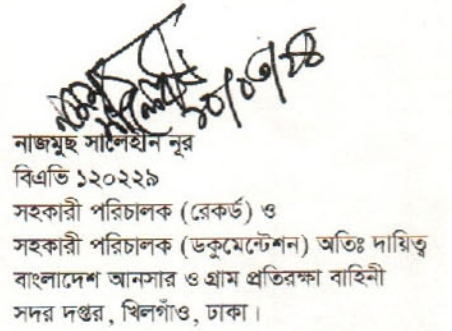 নাজমুছ সালেহীন নূর
বিএভি ১২০২২৯
সহকারী পরিচালক (রেকর্ড) ও
সহকারী পরিচালক (ডকুমেন্টেশন) অতিঃ দায়িত্ব
বাংলাদেশ আনসার ও গ্রাম প্রতিরক্ষা বাহিনী
সদর দপ্তর, খিলগাঁও, ঢাকা।